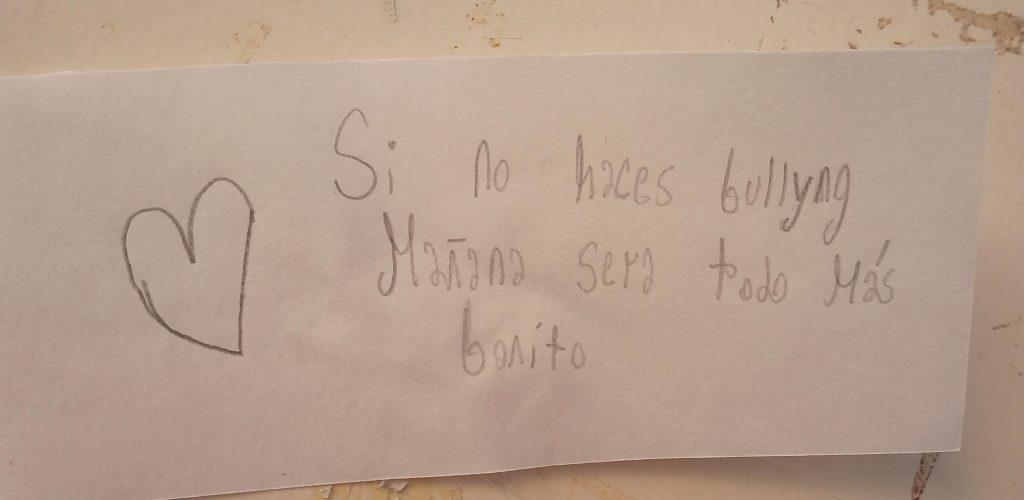 Si no haces bullyng
Mañana sera todo Más
bonito